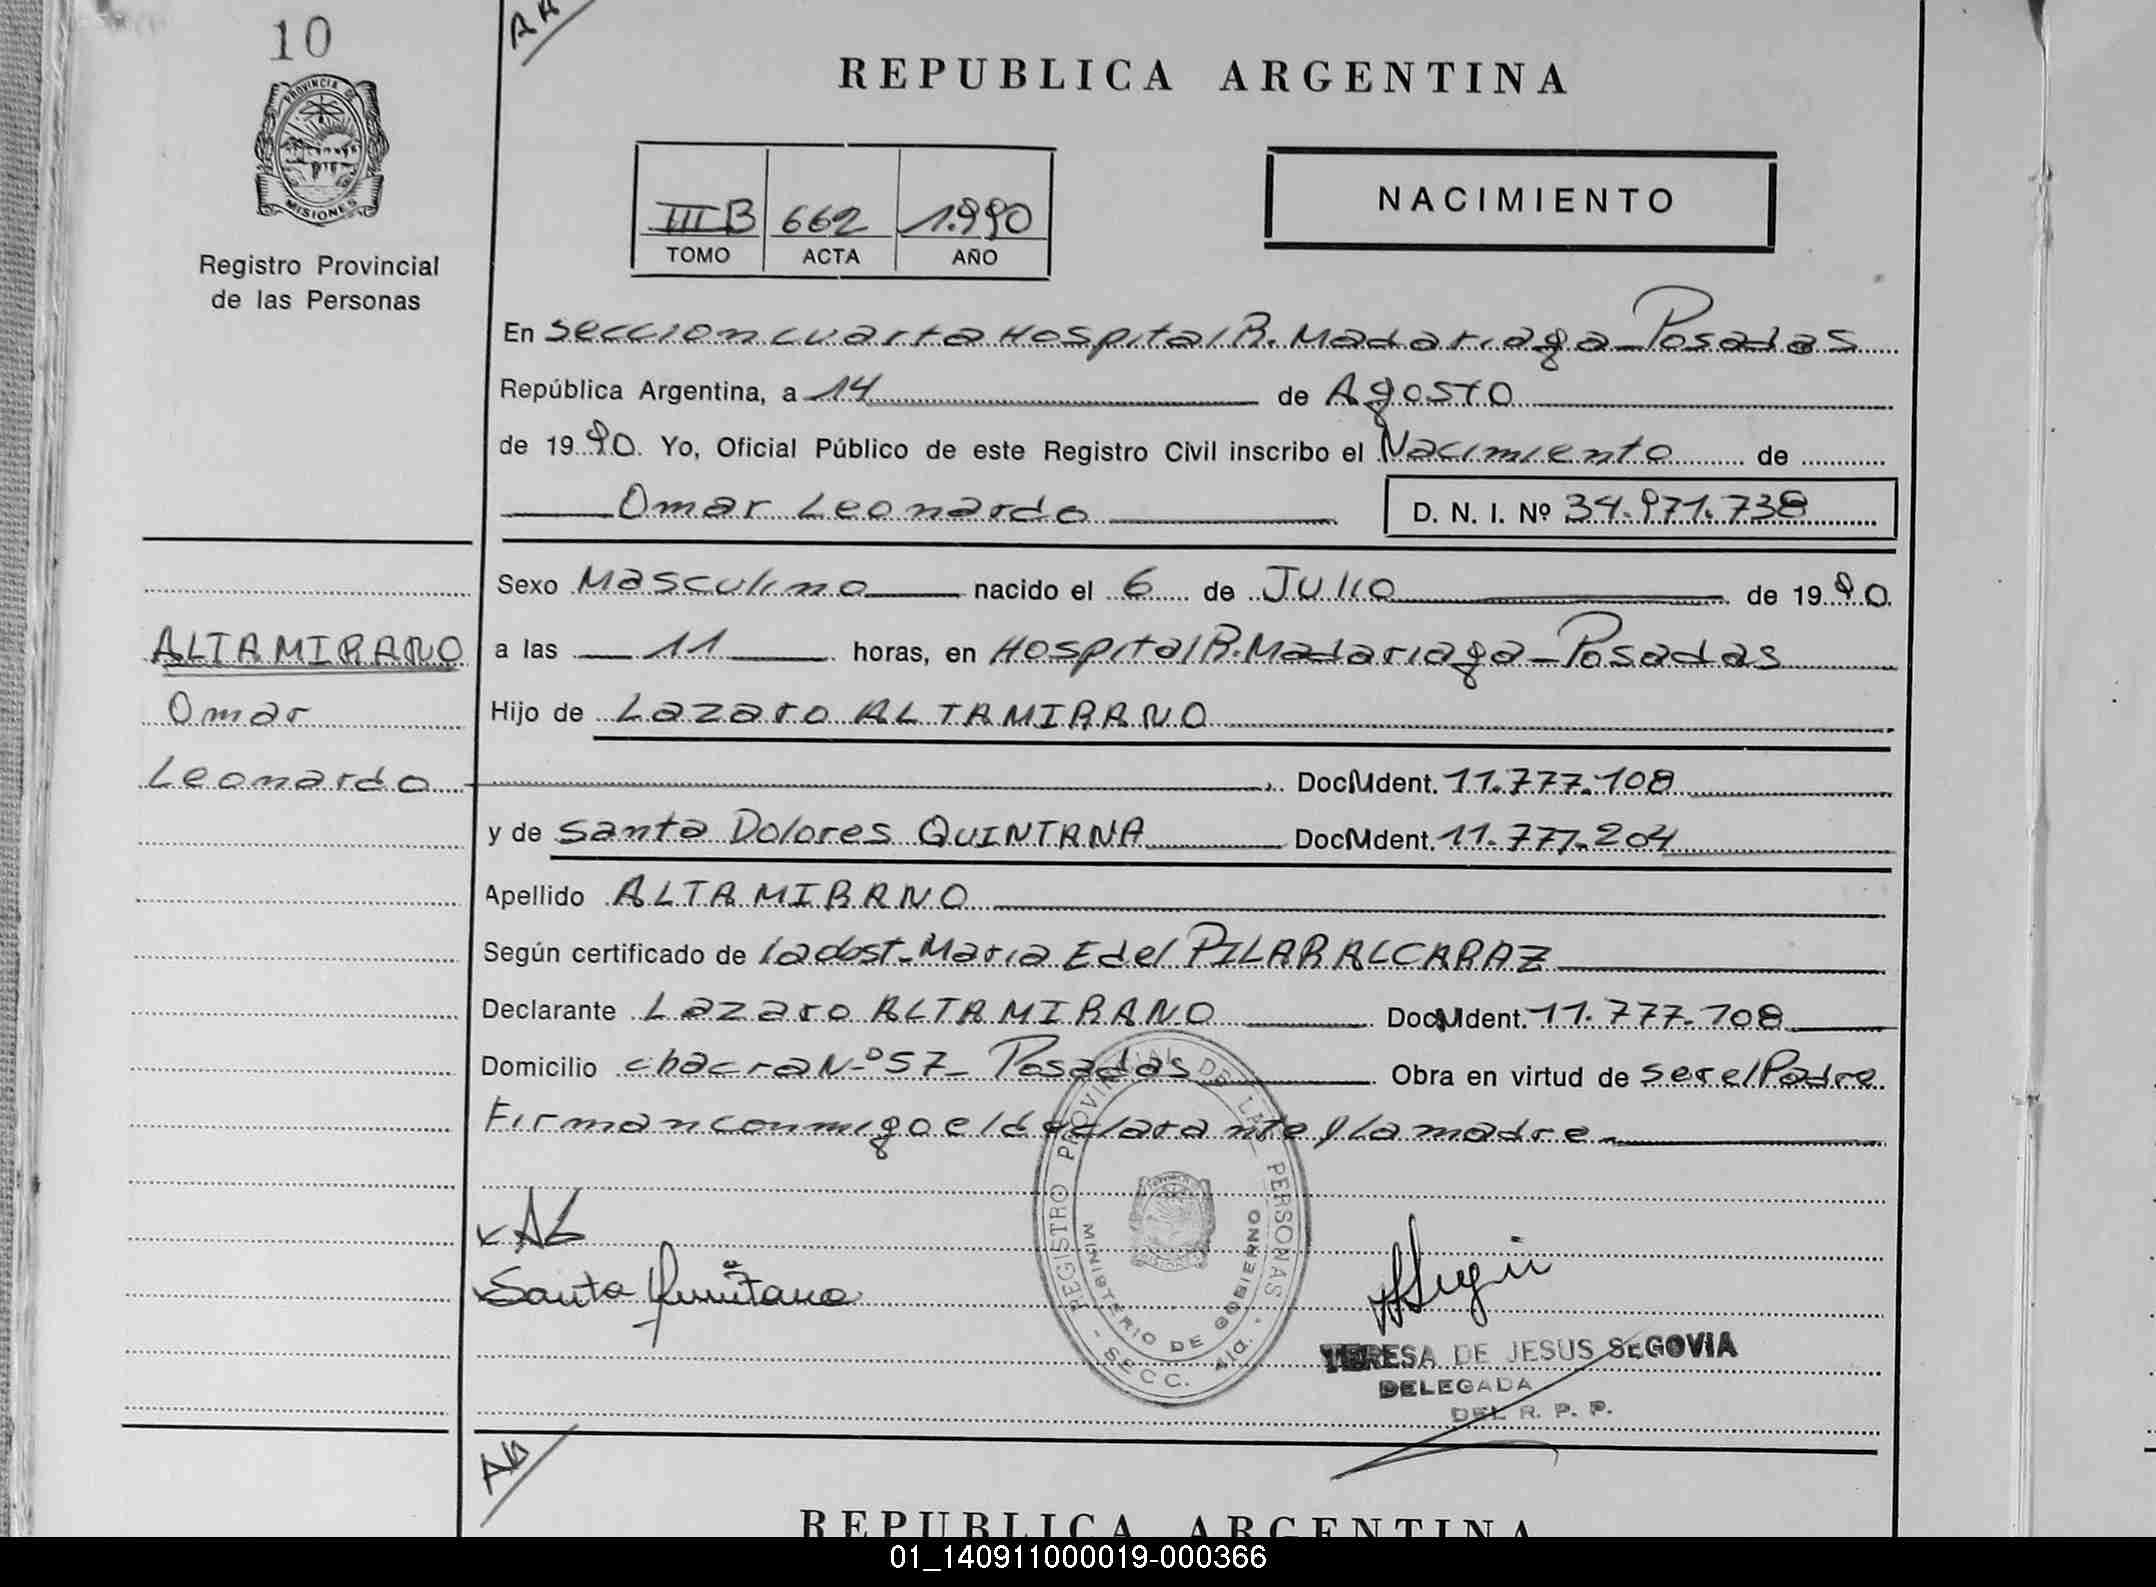 10
AA
PROVINCIA DE
MISIONES
Registro Provincial
de las Personas
REPUBLICA ARGENTINA
III B 662 1.990
TOMO ACTA AÑO
NACIMIENTO
En seccion cuarta Hospital R. Madariaga - Posadas
República Argentina, a 14 de Agosto
de 1990. Yo, Oficial Público de este Registro Civil inscribo el Nacimiento de
Omar Leonardo D. N. I. Nº 34.971.738
Sexo Masculino nacido el 6 de Julio de 1990.
ALTAMIRANO
Omar
Leonardo
a las 11 horas, en Hospital R. Madariaga - Posadas
Hijo de Lazaro ALTAMIRANO
Doc. M Ident. 11.777.108
y de Santa Dolores QUINTANA Doc. M Ident. 11.777.204
Apellido ALTAMIRANO
Según certificado de la obst. Maria Edel PILAR ALCARAZ
Declarante Lazaro ALTAMIRANO Doc. M Ident. 11.777.108
Domicilio chacra Nº 57 - Posadas Obra en virtud de ser el Padre
Firman conmigo el declarante y la madre.
REGISTRO PROVINCIAL DE LAS PERSONAS
MINISTERIO DE GOBIERNO
- SECC. 4ta. -
AL
Santa Quintana
TERESA DE JESUS SEGOVIA
DELEGADA
DEL R. P. P.
REPUBLICA ARGENTINA
01_140911000019-000366